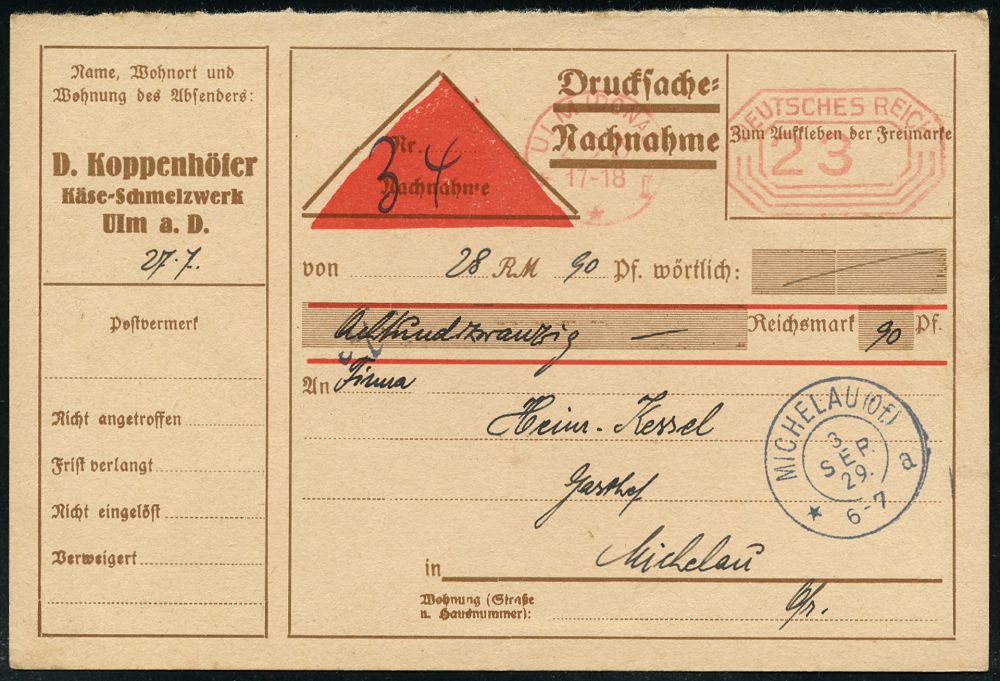 Name, Wohnort und
Wohnung des Absenders:
D. Koppenhöfer
Käse-Schmelzwerk
Ulm a. D.
27.7.
Postvermerk
Nicht angetroffen
Frist verlangt
Nicht eingelöst
Verweigert
Drucksache-
Nachnahme
Nr.
34
Nachnahme
ULM (DONAU)
17-18 II
DEUTSCHES REICH
23
Zum Aufkleben der Freimarke
von 28 RM 90 Pf. wörtlich:
Achtundzwanzig — Reichsmark 90 Pf.
An Firma
Heinr. Kessel
Gasthof
in Michelau
Wohnung (Straße
u. Hausnummer):
Ofr.
MICHELAU (Of.)
3
SEP.
29.
a
6-7